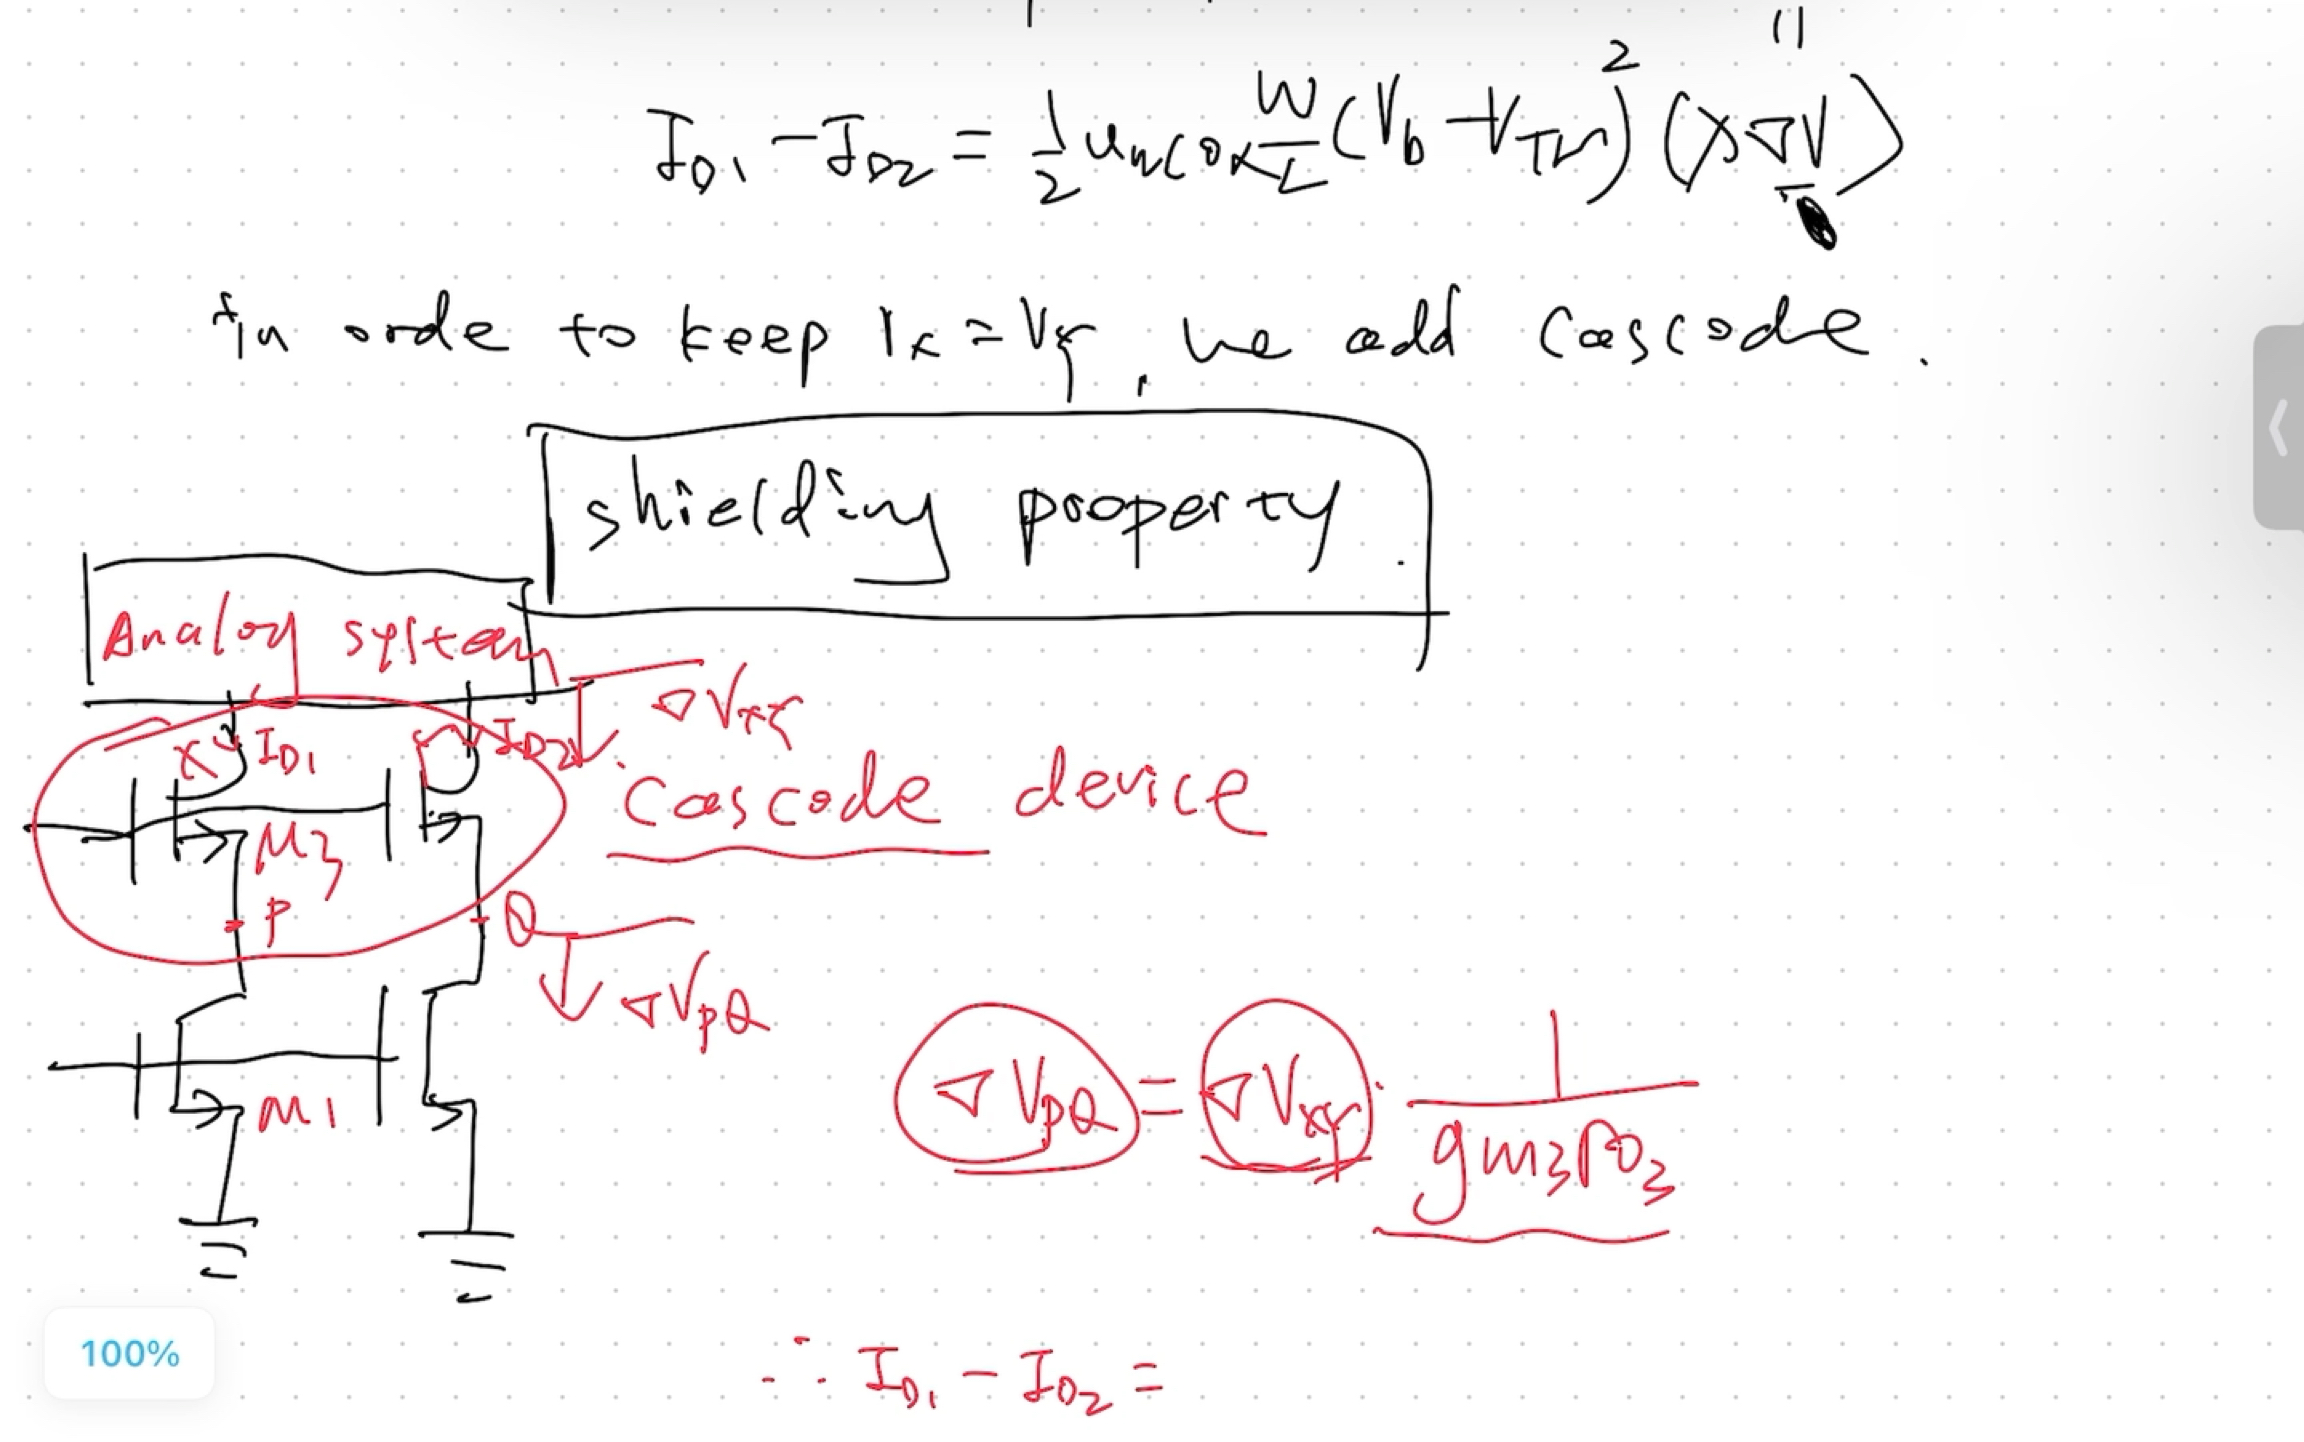 I_D1 - I_D2 = 1/2 u_n Cox W/L (V_b - V_TH)^2 (λ ∇V)
*in orde to keep V_x = V_Y, we add Cascode.
shielding property.
Analog system
∇V_XY
X I_D1 I_D2
Cascode device
M3
P Q
∇V_PQ
M1
∇V_PQ = ∇V_XY · 1/(gm3 ro3)
100%
∴ I_D1 - I_D2 =